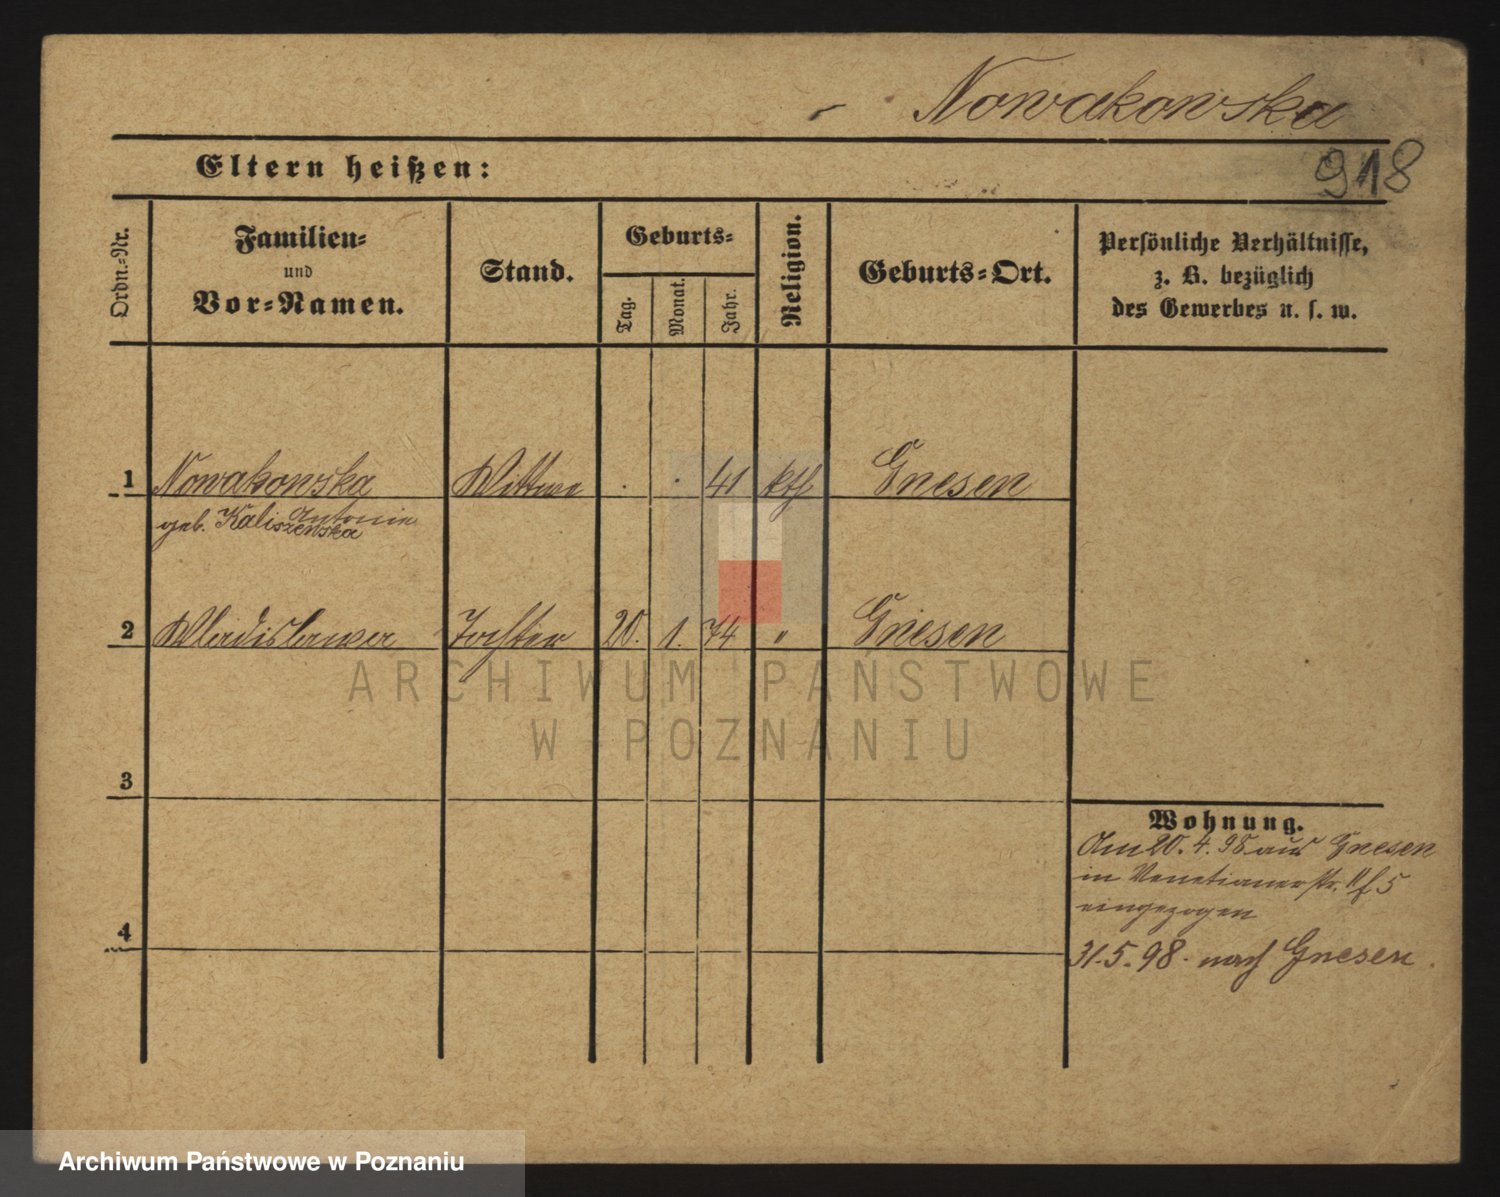 Nowakowska
918
Eltern heißen:
Ordn.-Nr.
Familien-
und
Vor-Namen.
Stand.
Geburts-
Tag.
Monat.
Jahr.
Religion.
Geburts-Ort.
Persönliche Verhältnisse,
z. B. bezüglich
des Gewerbes u. s. w.
1 Nowakowska Wittwe . . 41 kth Gnesen
Antonie
geb. Kaliszewska
2 Wladislawa Tochter 20. 1. 74 " Gnesen
3
4
Wohnung.
Am 20. 4. 98 aus Gnesen
in Venetianerstr. 5
eingezogen
31.5.98. nach Gnesen.
ARCHIWUM PAŃSTWOWE
W POZNANIU
Archiwum Państwowe w Poznaniu